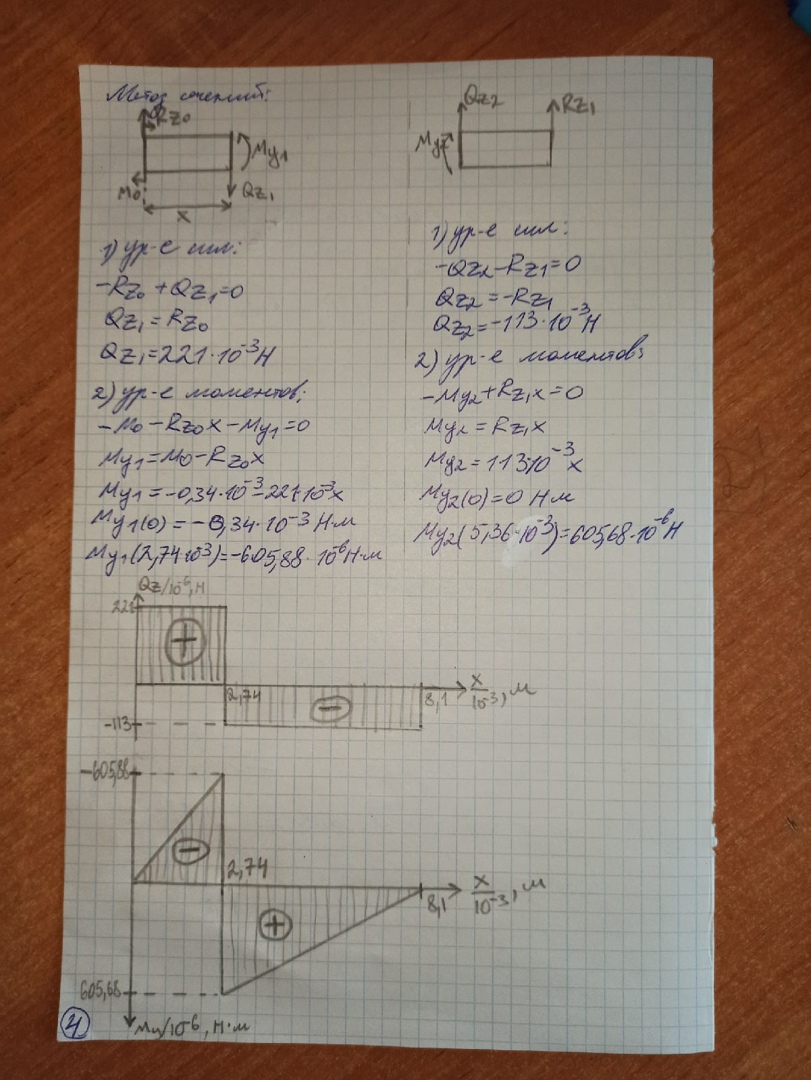 Метод сечений:
Rz₀
My₁
M₀
Qz₁
x
1) ур-е сил:
-Rz₀ + Qz₁ = 0
Qz₁ = Rz₀
Qz₁ = 221·10⁻³ Н
2) ур-е моментов:
-M₀ - Rz₀x - My₁ = 0
My₁ = M₀ - Rz₀x
My₁ = -0,34·10⁻³ - 221·10⁻³x
My₁(0) = -0,34·10⁻³ Н·м
My₁(2,74·10⁻³) = -605,88·10⁻⁶ Н·м
Qz2
Rz1
My2
1) ур-е сил:
-Qz2 - Rz1 = 0
Qz2 = -Rz1
Qz2 = -113·10⁻³ Н
2) ур-е моментов:
-My2 + Rz1x = 0
My2 = Rz1x
My2 = 113·10⁻³x
My2(0) = 0 Н·м
My2(5,36·10⁻³) = 605,68·10⁻⁶ Н
Qz/10⁻⁶, Н
221
+
2,74
-
8,1
x/10⁻³, м
-113
-605,88
-
2,74
+
8,1
x/10⁻³, м
605,68
My/10⁻⁶, Н·м
4